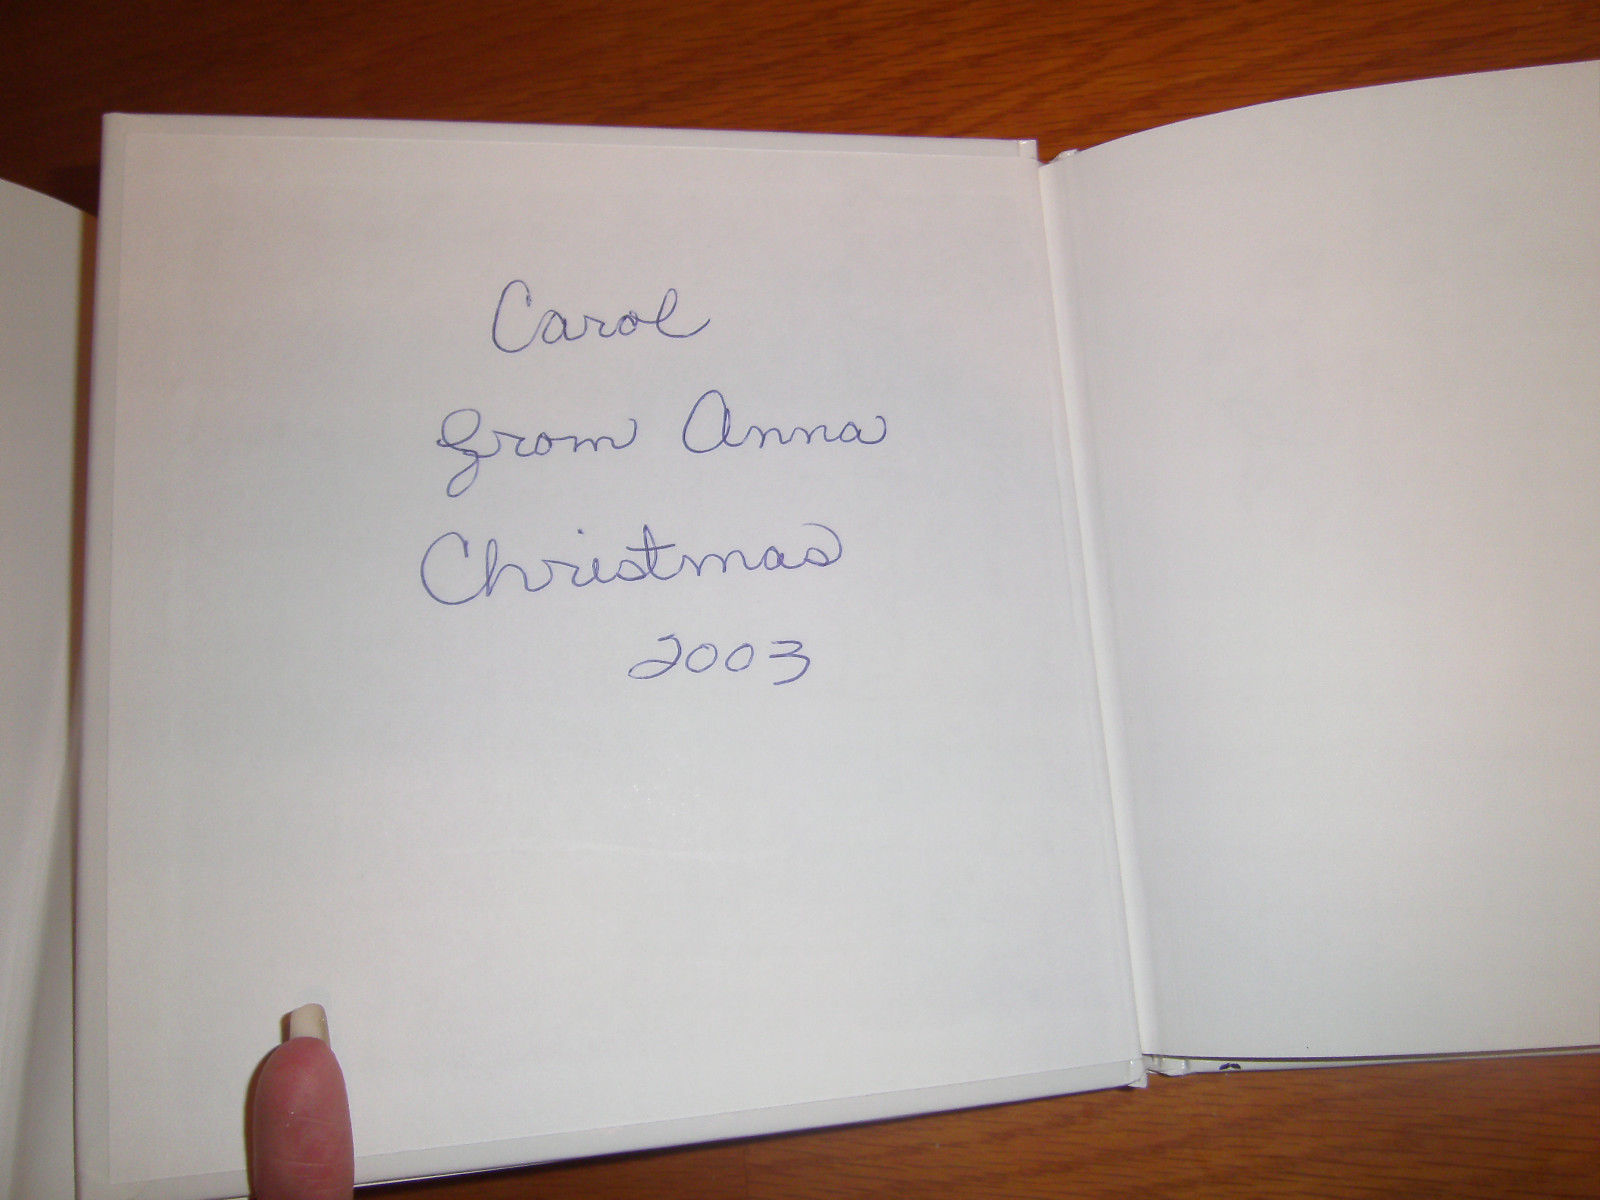 Carol
from Anna
Christmas
2003